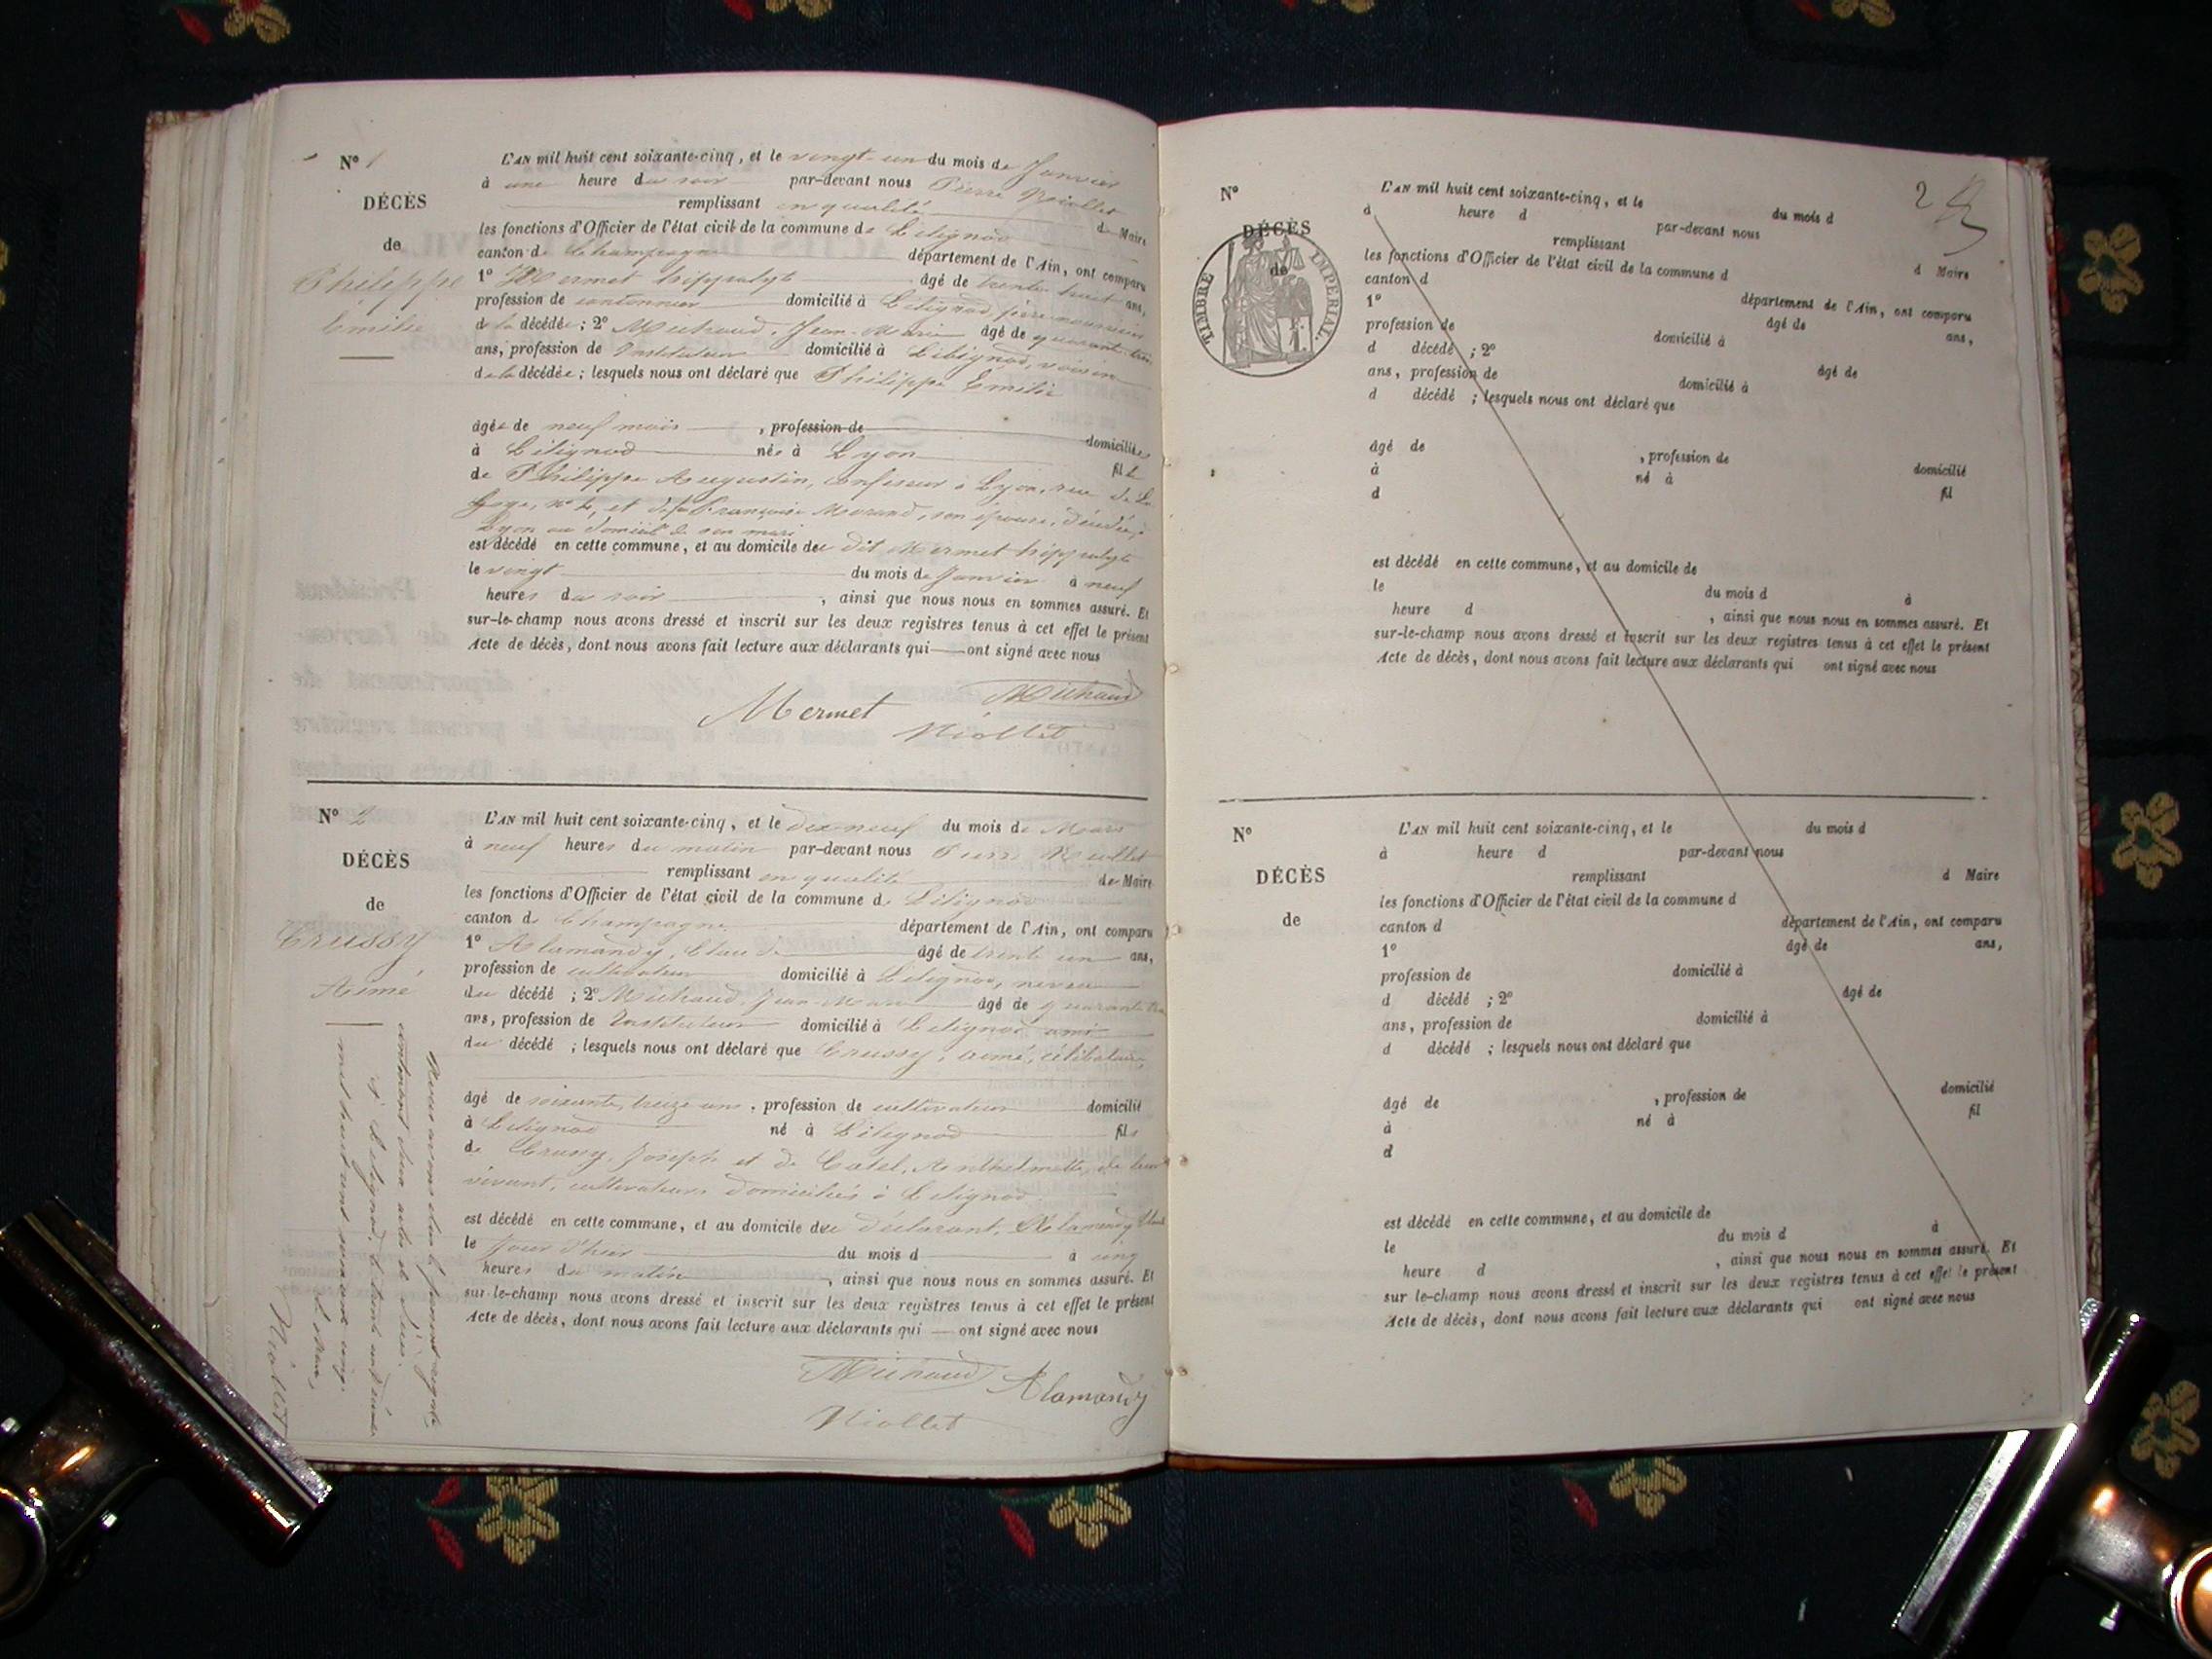 N° 1
DÉCÈS
de
Philippe
Emilie
L'AN mil huit cent soixante-cinq, et le vingt-un du mois de Janvier
à une heure du soir par-devant nous Pierre Niollet
remplissant en qualité de Maire
les fonctions d'Officier de l'état civil de la commune de Lilignod
canton de Champagne département de l'Ain, ont comparu
1° Mermet hippolyte âgé de trente huit ans,
profession de cantonnier domicilié à Lilignod, père nourricier
de la décédée; 2° Michaud, Jean-Marie âgé de quarante trois
ans, profession de Instituteur domicilié à Lilignod, voisin
de la décédée; lesquels nous ont déclaré que Philippe Emilie
âgée de neuf mois, profession de domiciliée
à Lilignod née à Lyon fille
de Philippe Augustin, confiseur à Lyon, rue de La
Loge, n° 4, et de Françoise Morand, son épouse, décédée à
Lyon au domicile de son mari
est décédé en cette commune, et au domicile du dit Mermet hippolyte
le vingt du mois de Janvier à neuf
heures du soir, ainsi que nous nous en sommes assuré. Et
sur-le-champ nous avons dressé et inscrit sur les deux registres tenus à cet effet le présent
Acte de décès, dont nous avons fait lecture aux déclarants qui — ont signé avec nous
Mermet Michaud
Niollet
N° 2
DÉCÈS
de
Crussy
Aimé
L'AN mil huit cent soixante-cinq, et le dix neuf du mois de Mars
à neuf heures du matin par-devant nous Pierre Niollet
remplissant en qualité de Maire
les fonctions d'Officier de l'état civil de la commune de Lilignod
canton de Champagne département de l'Ain, ont comparu
1° Alamandy, Claude âgé de trente un ans,
profession de cultivateur domicilié à Lilignod, neveu
du décédé; 2° Michaud, Jean-Marie âgé de quarante trois
ans, profession de Instituteur domicilié à Lilignod ami
du décédé; lesquels nous ont déclaré que Crussy, aimé, célibataire
âgé de soixante treize ans, profession de cultivateur domicilié
à Lilignod né à Lilignod fils
de Crussy, Joseph et de Catel, Anthelmette, de leur
vivant, cultivateurs domiciliés à Lilignod
est décédé en cette commune, et au domicile du déclarant, Alamandy Claude
le jour d'hier du mois d à cinq
heures du matin, ainsi que nous nous en sommes assuré. Et
sur-le-champ nous avons dressé et inscrit sur les deux registres tenus à cet effet le présent
Acte de décès, dont nous avons fait lecture aux déclarants qui — ont signé avec nous
Michaud Alamandy
Niollet
Nous avons clos le présent registre
contenant deux actes de décès.
à Lilignod, le trente un décembre
mil huit cent soixante cinq.
Le Maire,
Niollet
2
N°
DÉCÈS
de
TIMBRE IMPÉRIAL
L'AN mil huit cent soixante-cinq, et le du mois d
à heure d par-devant nous
remplissant d Maire
les fonctions d'Officier de l'état civil de la commune d
canton d département de l'Ain, ont comparu
1° âgé de ans,
profession de domicilié à
d décédé ; 2° âgé de
ans, profession de domicilié à
d décédé ; lesquels nous ont déclaré que
âgé de , profession de domicilié
à né à fil
d
est décédé en cette commune, et au domicile de
le du mois d à
heure d , ainsi que nous nous en sommes assuré. Et
sur-le-champ nous avons dressé et inscrit sur les deux registres tenus à cet effet le présent
Acte de décès, dont nous avons fait lecture aux déclarants qui ont signé avec nous
N°
DÉCÈS
de
L'AN mil huit cent soixante-cinq, et le du mois d
à heure d par-devant nous
remplissant d Maire
les fonctions d'Officier de l'état civil de la commune d
canton d département de l'Ain, ont comparu
1° âgé de ans,
profession de domicilié à
d décédé ; 2° âgé de
ans, profession de domicilié à
d décédé ; lesquels nous ont déclaré que
âgé de , profession de domicilié
à né à fil
d
est décédé en cette commune, et au domicile de
le du mois d à
heure d , ainsi que nous nous en sommes assuré. Et
sur le-champ nous avons dressé et inscrit sur les deux registres tenus à cet effet le présent
Acte de décès, dont nous avons fait lecture aux déclarants qui ont signé avec nous